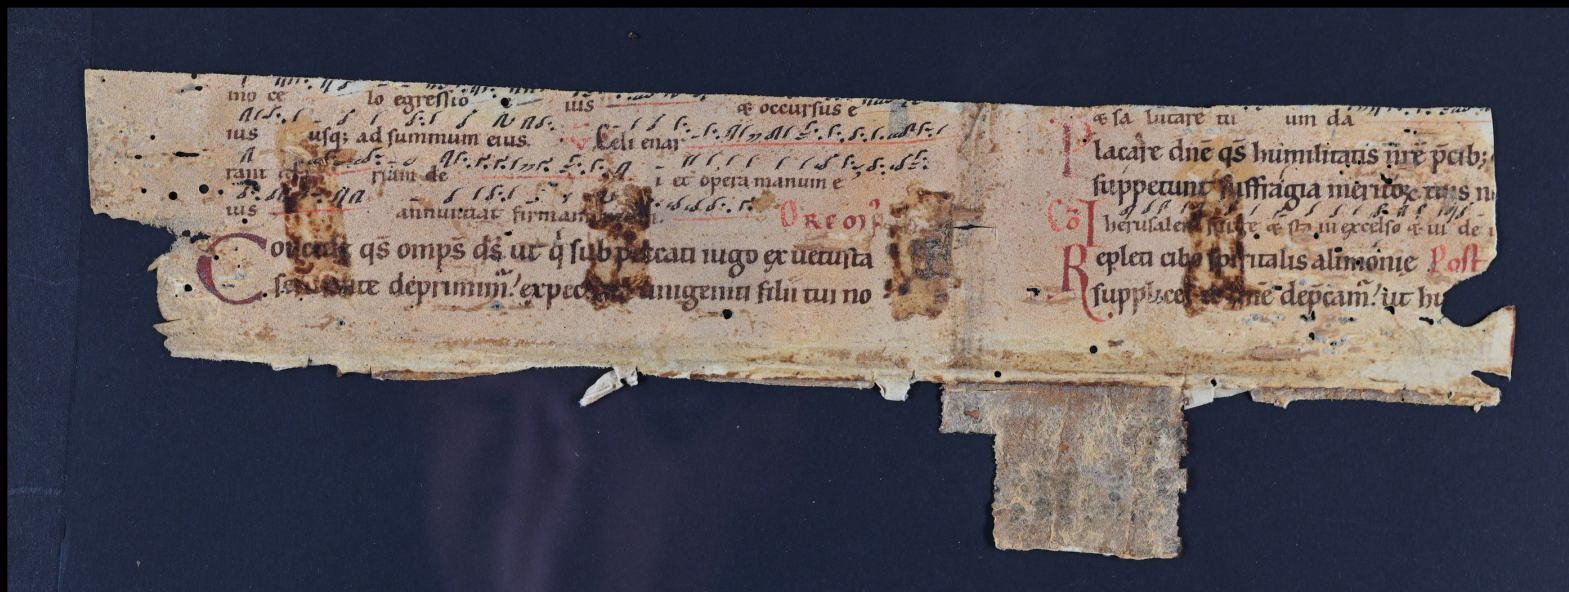 mo ce lo egressio ius & occursus e
ius usq; ad summum eius. Celi enar
rant riam de i et opera manum e
ius annuntiat firmam OREMꝰ
Concede qs̄ omps̄ ds̄ ut q̇ sub peccati iugo ex uetusta
seruitute deprimim̄ expec unigeniti filii tui no
& sa lutare tu um da
Placare dn̄e qs̄ humilitatis nr̄e p̄cib;
suppetunt suffragia meritoꝝ
Cō Iherusalem & sta in excelso & ui de
Repleti cibo spiritalis alimonie Post
supplices te dn̄e dep̄cam̄ ut hu